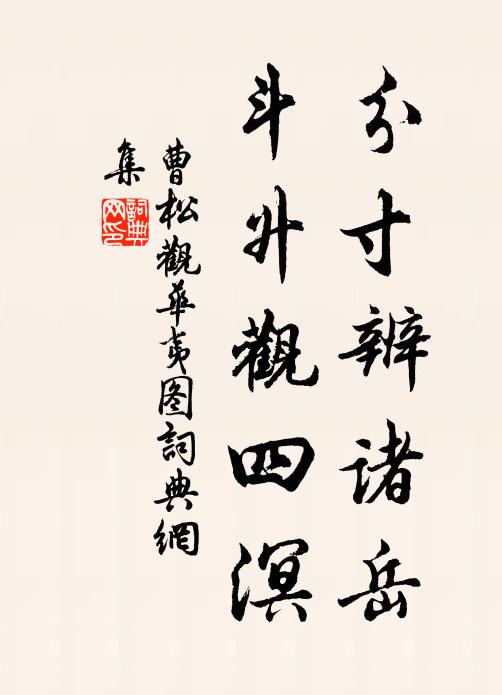 分寸辨诸岳
斗升觀四溟
曹松觀華夷图詞典網
集
詞典网印